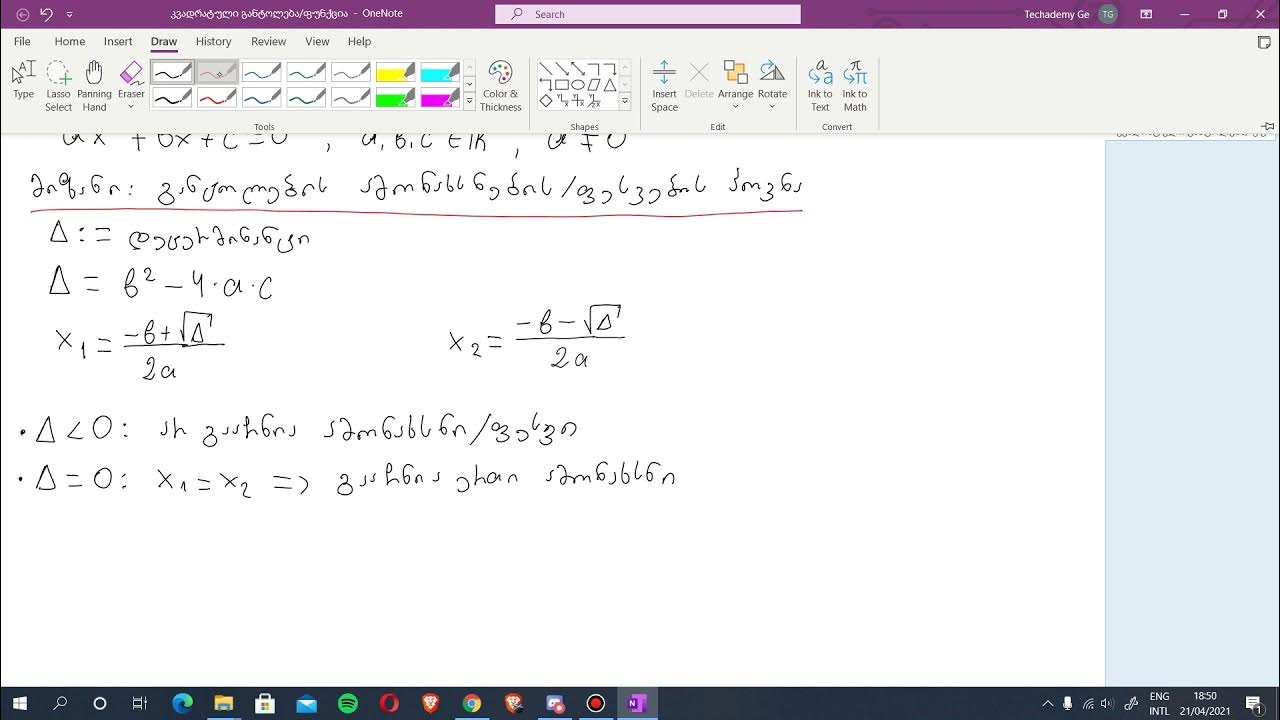 კვადრატული განტოლება/ფუნქცია - OneNote
Search
Techademy Ge TG
File Home Insert Draw History Review View Help
Type Lasso Select Panning Hand Eraser Color & Thickness Insert Space Delete Arrange Rotate Ink to Text Ink to Math
Tools Shapes Edit Convert
ax + bx + c = 0 , a, b, c ∈ ℝ , a ≠ 0
მიზანი: განტოლების ამონახსნების/ფესვების პოვნა
Δ := დეტერმინანტი
Δ = b² - 4·a·c
x₁ = (-b + √Δ) / 2a x₂ = (-b - √Δ) / 2a
• Δ < 0: არ გააჩნია ამონახსნი/ფესვი
• Δ = 0: x₁ = x₂ => გააჩნია ერთი ამონახსნი
ENG 18:50
INTL 21/04/2021